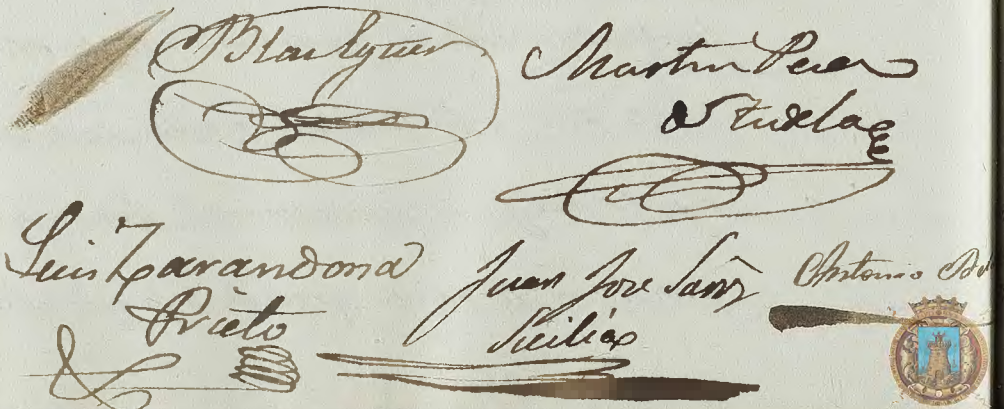 Blas Yguer
Martin Perez
de Tudela
Luis Zarandona
Prieto
Juan Jose Sanz
Sicilia
Antonio